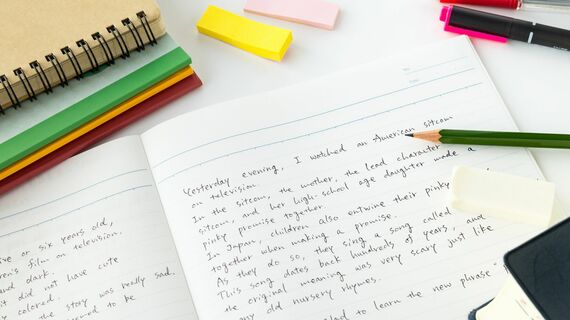 ive or six years old,
ren's film on television.
and dark.
it did not have cute
colored.
the story was really sad.
seemed to be
No.
Date
Yesterday evening, I watched an American sitcom
on television.
In the sitcom, the mother, the lead character
sitcom, and her high-school age daughter made a
pinky promise together.
In Japan, children also entwine their pinky
together when making a promise.
As they do so, they sing a song called
This song dates back hundreds of years, and
the original meaning was very scary just like
any old nursery rhymes.
to learn the new phrase